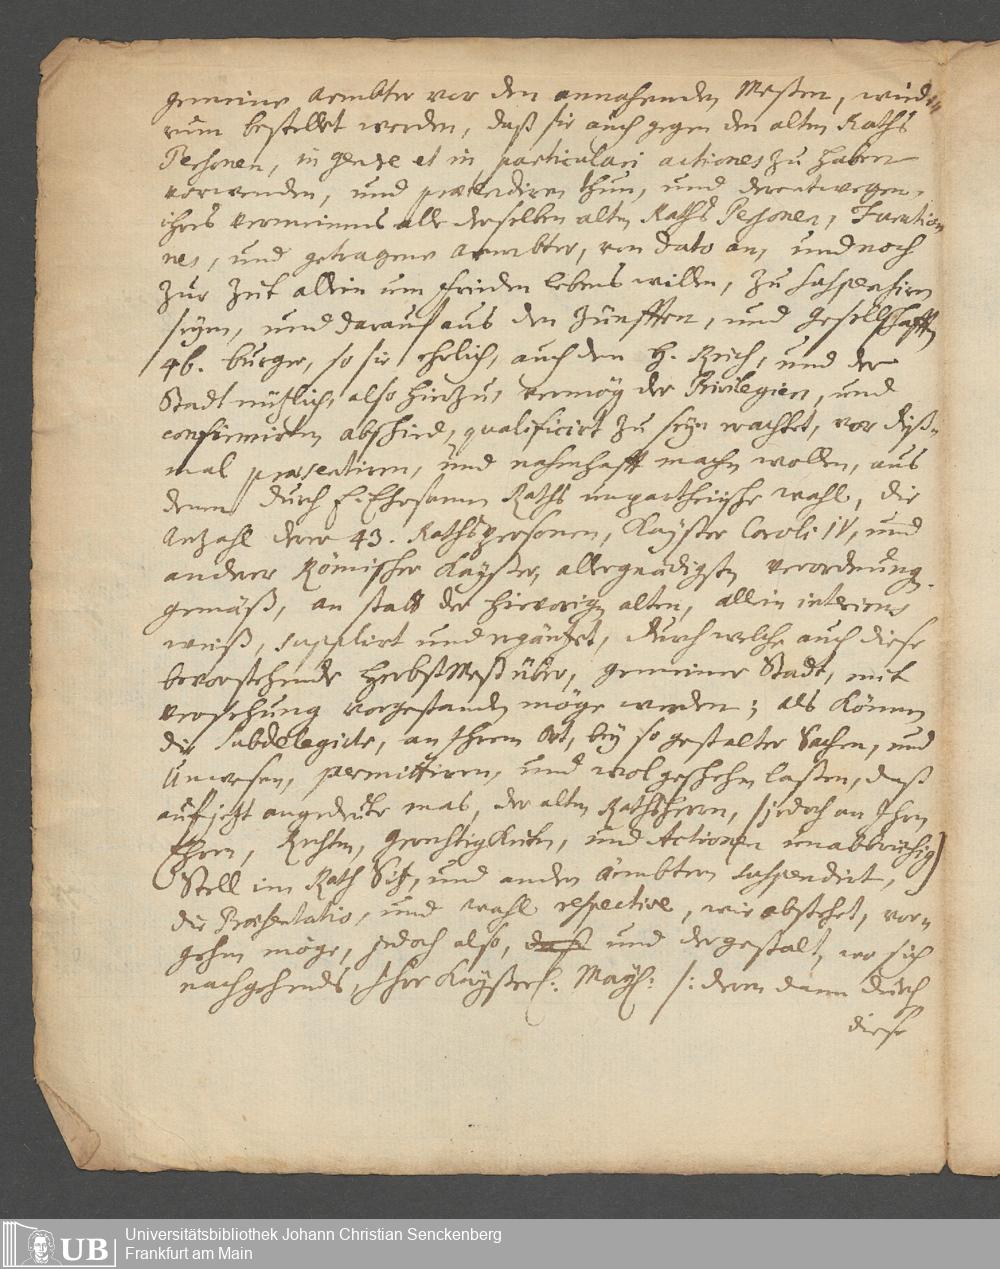 gemeine Aembter vor den annahenden Meßen, widde-
rum bestellet werden, daß sie auch gegen den alten Raths
Personen, in genere et in particulari actiones zu haben
vorwenden, und prætendiren thun, und derentwegen,
ihres vermeinens alle derselben alten Raths Personen, Functio-
nes, und getragene Aembter, von dato an, und noch
zur Zeit allein um frieden lebens willen, zu suspendiren
seyen, und darauf aus den Zünfften, und Gesellschafften
46. burger, so sie ehrlich, auch den H. Reich, und der
Stadt nützlich, also hierzu, vermög der Privilegien, und
confirmirten abschied, qualificirt zu seyn erachtet, vor diß-
mal præsentiren, und nahmhafft machen wollen, aus
denen durch E. Ehrsamen Raths unpartheyische wahl, die
Anzahl derer 43. Rathspersonen, Kayser Caroli IV, und
anderer Römischer Kayser, allergnädigsten verordnung
gemäß, an statt der hievorigen alten, allein interims
weiß, supplirt und ergäntzet, durch welche auch diese
bevorstehende Herbst Meß über, gemeiner Stadt, mit
versehung vorgestanden möge werden; als können
die Subdelegirte, an Ihrem Ort, bey so gestalter Sachen, und
Unwesen, permittiren, und wol geschehen laßen, daß
auf jetzt angedeute mas, der alten Rathsherrn, (jedoch an Ihren
Ehren, Rechten, Gerechtigkeiten, und Actionen unabbrüchig)
Stell im Rath Sitz, und andern Aembtern suspendirt,
die Præsentatio, und wahl respective, wie abstehet, vor-
gehen möge, jedoch also, und dergestalt, wo sich
nachgehends, Ihre Kayserl: Mayt: /: deren dann durch
diese
Universitätsbibliothek Johann Christian Senckenberg
Frankfurt am Main
UB